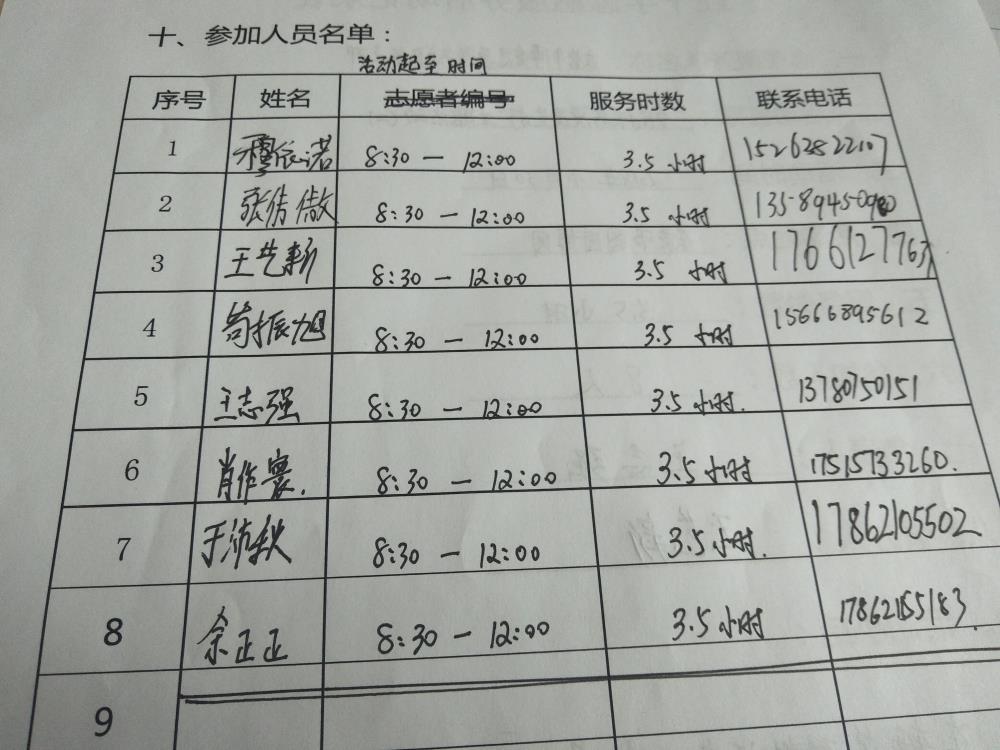 十、参加人员名单：
活动起至时间
序号 姓名 志愿者编号 服务时数 联系电话
1 穆辰诺 8:30 — 12:00 3.5 小时 15263822107
2 张倩傲 8:30 — 12:00 3.5 小时 13589450980
3 王艺新 8:30 — 12:00 3.5 小时 17661277637
4 苟振旭 8:30 — 12:00 3.5 小时 15666895612
5 王志强 8:30 — 12:00 3.5 小时. 13780750151
6 肖作寰. 8:30 — 12:00 3.5 小时 17515733260.
7 于沛秋 8:30 — 12:00 3.5 小时. 17862105502
8 余正正 8:30 — 12:00 3.5 小时 17862155183.
9